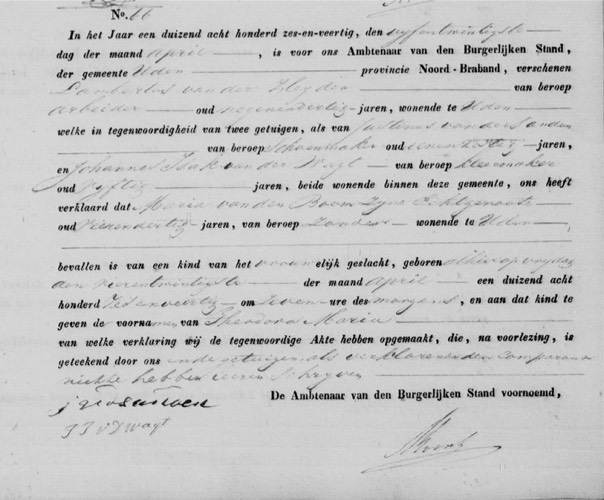 No. 66
In het Jaar een duizend acht honderd zes-en-veertig, den vyfentwintigste
dag der maand April, is voor ons Ambtenaar van den Burgerlijken Stand,
der gemeente Uden provincie Noord-Braband, verschenen
Lambertus van der Heyden van beroep
arbeider oud negenendertig jaren, wonende te Uden
welke in tegenwoordigheid van twee getuigen, als van Justinus van der Sanden
van beroep Schoenmaker oud jaren,
en Johannes Izak van der Vagt van beroep kleermaker
oud vyftig jaren, beide wonende binnen deze gemeente, ons heeft
verklaard dat Maria van den Boom Zyne Echtgenoote
oud jaren, van beroep Zonder wonende te Uden
bevallen is van een kind van het vrouwelijk geslacht, geboren alhier op vrydag
den vierentwintigste der maand April een duizend acht
honderd Zesenveertig om Zeven ure des morgens, en aan dat kind te
geven de voornamen van Theodora Maria
van welke verklaring wij de tegenwoordige Akte hebben opgemaakt, die, na voorlezing, is
geteekend door ons ende getuigen als verklarende den Comparant
niette hebben leeren Schryven
De Ambtenaar van den Burgerlijken Stand voornoemd,
J J v d Wagt